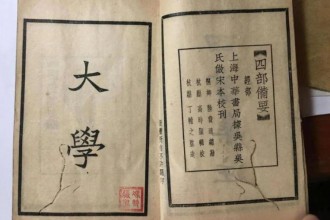 【四部備要】
經部
上海中華書局據吳縣吳
氏倣宋本校刊
桐鄉 陸費逵總勘
杭縣 高時顯輯校
杭縣 丁輔之監造
大學